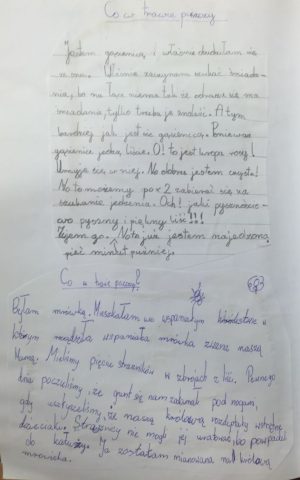 Co w trawie piszczy
Jestem gąsienicą i właśnie obudziłam się
ze snu. Właśnie zaczynam szukać śniada-
nia, bo na łące nie ma tak że odrazu się ma
śniadanie, tylko trzeba je znaleść. A tym
bardziej jak jest się gąsienicą. Ponieważ
gąsienice jedzą liście. O! to jest kropla rosy!
Umyję się w niej. No dobra jestem czysta!
No to możemy po raz 2 zabierać się za
szukanie jedzenia. Och! jaki pysznościo-
wo pyszny i piękny liść!!!
Zjem go. No to już jestem najedzona
pięć minut później.
Co w trawie piszczy?
Byłam mrówką. Mieszkałam we wspaniałym królestwie w
którym mądra wspaniała mrówka zawsze naszą
Mieliśmy pięciu strażników w zbrojach z liści. Pewnego
dnia poczuliśmy, że grunt się nam załamał pod nogami,
gdy zobaczyliśmy, że naszą królową rozdeptały wstrętne
dzieciaki. Strażnicy nie mogli jej uratować, bo powpadali
do kałuży. Ja zostałam mianowana na królową
mrowiska.